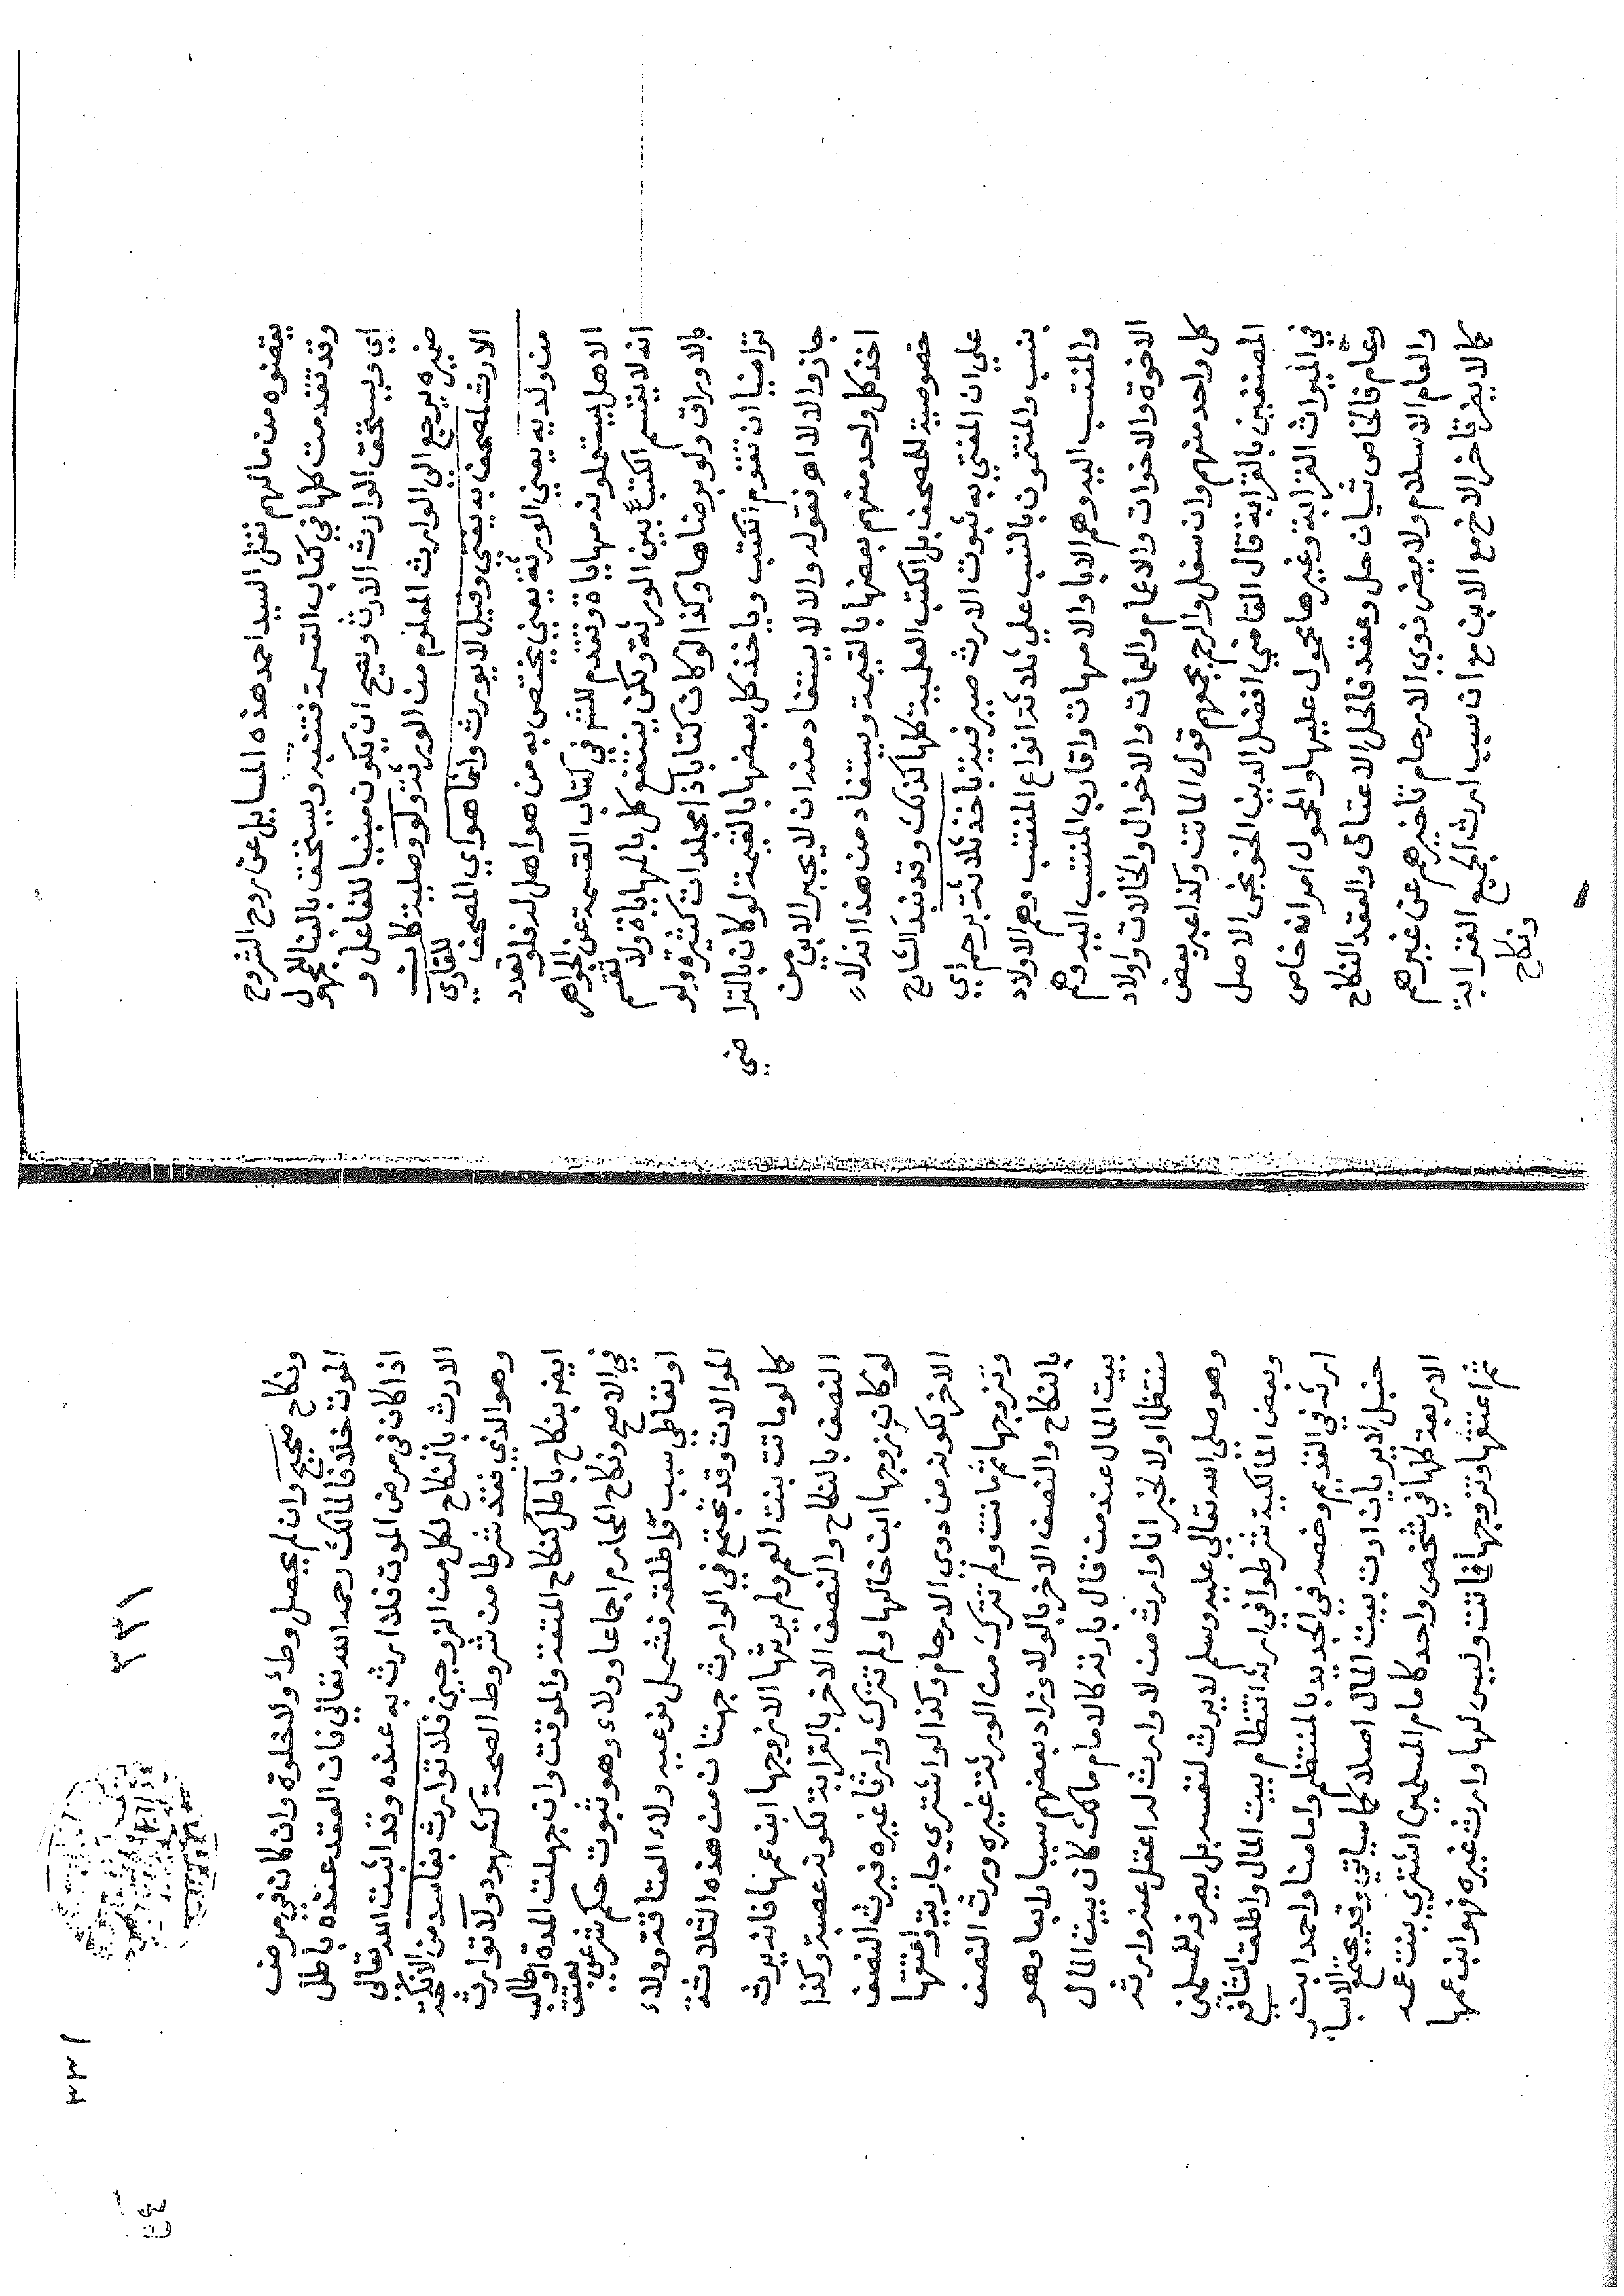 يعضوه من مالهم نقل السيد احمد هذه المسايل عن روح الشروح
وقد تقدمت كلها في كتاب القسمة فتنبه ويستحق بالبنا للمجهول
اي ويستحق الوارث الارث ويصح ان يكون مبنيا للفاعل و
ضميره يرجع الي الوارث المعلوم من الورثة ولو وصلية كان
الارث لمصحف به يفتي وقيل لا يورث وانما هو اي المصحف للقاري
من ولديه يعني الورثة يعني يختص به من هو اهل له فلو تعدد
الاهل يستعملونه مهاياة وتقدم للشم في كتاب القسمة عن الجواهر
انه لا يقسم الكتب بين الورثة ولكن ينتفع كل بالمهاياة ولا تقسم
بالاوراق ولو برضاها وكذا لو كان كتابا ذا مجلدات كثيرة ولو
تراضيا ان تقوم الكتب وياخذ كل بعضها بالقيمة لو كان بالتراضي
جاز والا لا اهـ فقوله والا لا يستفاد منه ان لا يجبر الابي من
اخذ كل واحد منهم بعضها بالقيمة ويستفاد من هذا انه لا
خصوصية للمصحف بل الكتب العلمية كلها كذلك وقد نبه الشارح
علي ان المفتي به ثبوت الارث صير فيه ناخذ ثلاثة برحم اي
بنسب والمنتمون بالنسب علي ثلاثة انواع المنتسب وهم الاولاد
والمنتسب اليه وهم الابا والامهات واقارب المنتسب اليه وهم
الاخوة والاخوات والاعمام والعمات والاخوال والخالات واولاد
كل واحد منهم وان سفل والرحم يجمعهم قول الماتن وكذا عبر بعض
المصنفين بالقرابة قال القاضي افضل الدين الخونجي الاصل
في الميراث القرابة وغيرها محمول عليها والمحمول امرانه خاص
وعام فالخاص شيان حل وعقد فالحل الاعتاق والعقد النكاح
والعام الاسلام ولا يضر ذوي الارحام تاخيرهم عن غيرهم
كما لا يضر تاخر الاخ مع الابن مع ان سبب ارث الجميع القرابة
ونكاح
٣٣١
٣٣١
ونكاح صحيح وان لم يحصل وطئ ولا خلوة وان كان في مرض
الموت خلافا لمالك رحمه الله تعالي فان العقد عنده باطل
اذا كان في مرض الموت فلا ارث به عنده وقد اثبت الله تعالي
الارث بالنكاح لكل من الزوجين فلا توارث بفاسد من الانكحة
وهو الذي فقد شرطا من شروط الصحة كشهود ولا توارث
ايضه بنكاح باطل كنكاح المتعة والموقت وان جهلت المدة او طالت
في الاصح ونكاح المحارم اجماعا وولاء وهو ثبوت حكم شرعي بعتق
او تعاطي سبب واطلقه فشمل نوعيه ولاء العتاقة وولاء
الموالات وقد تجتمع في الوارث جهتان من هذه الثلاثة
كما لو ماتت بنت العم ولم يرثها الا زوجها ابن عمها فانه يرث
النصف بالنكاح والنصف الاخر بالقرابة لكونه عصبة وكذا
لو كان زوجها ابن خالها ولم تترك وارثا غيره فيرث النصف
الاخر لكونه من ذوي الارحام وكذا لو اشتري جارية واعتقها
وتزوجها ثم ماتت ولم تترك من الورثة غيره ورث النصف
بالنكاح والنصف الاخر بالولا وزاد بعضهم سببا رابعا وهو
بيت المال عند من قال بارثه كالامام مالك كان بيت المال
منتظما اولا لخبر انا وارث من لا وارث له اعقل عنه وارثه
وهو صلي الله تعالي عليه وسلم لا يرث لنفسه بل يصرفه للمسلمين
وبعض المالكية شرطوا في ارثه انتظام بيت المال واطلقه الشافعي
ارثه في القديم وخصه في الجديد بالمنتظم واما منا واحمد ابن
حنبل لا يريان ارث بيت المال اصلا كما سياتي وقد يجتمع الاسباب
الاربعة كلها في شخص واحد كامام المسلمين اشتري بنت عمه
ثم اعتقها وتزوجها فماتت وليس لها وارث غيره فهو ابن عمها